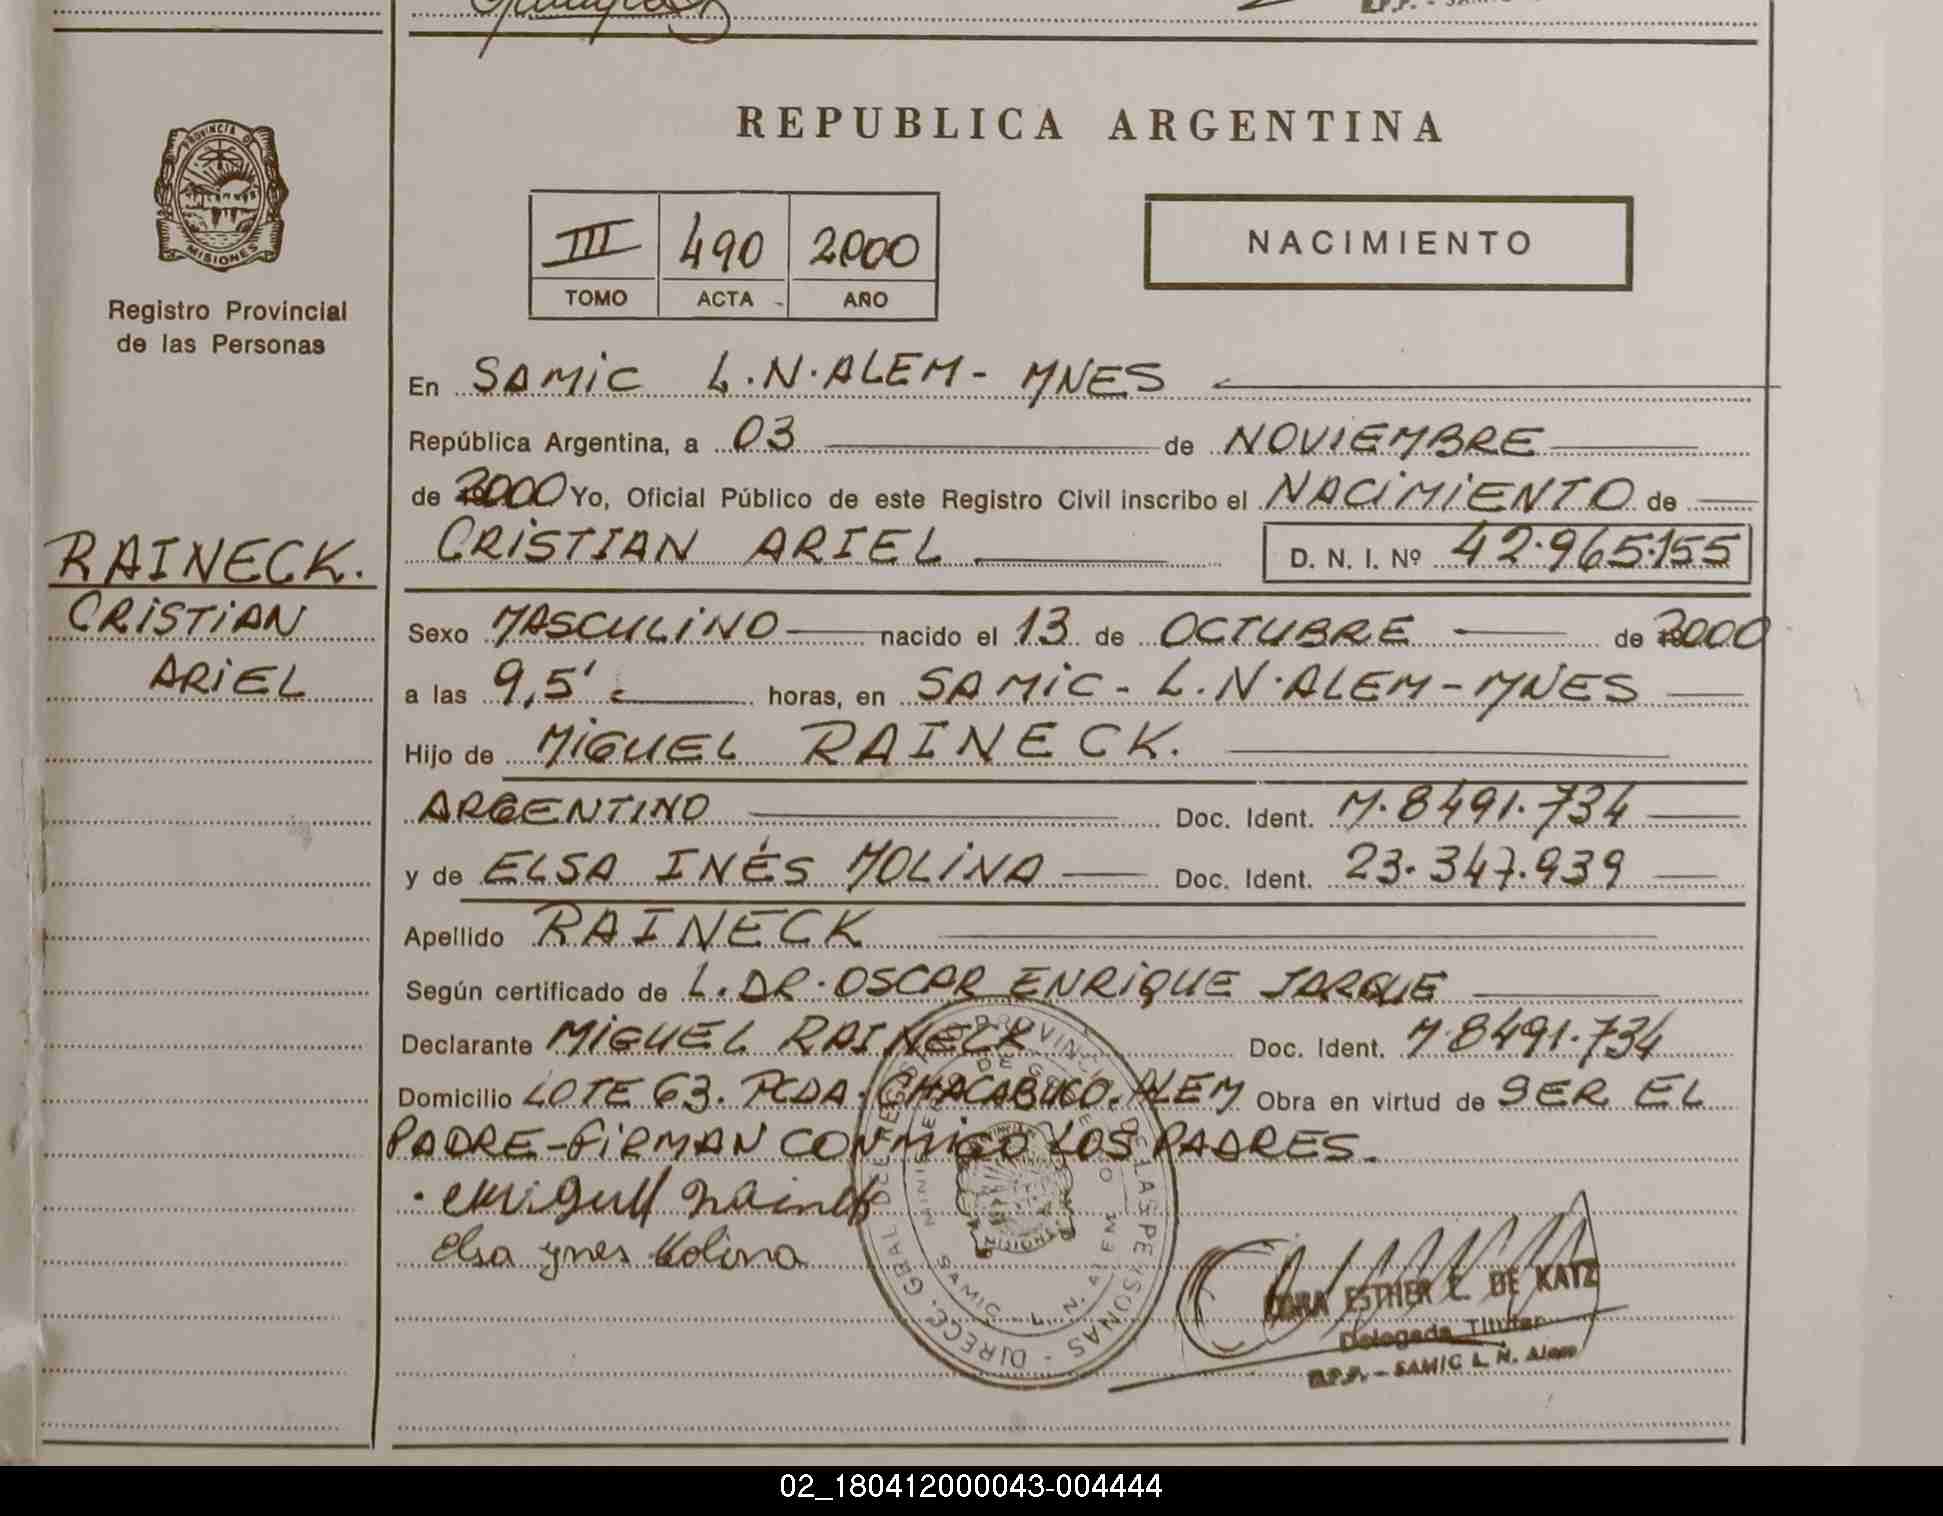 REPUBLICA ARGENTINA
PROVINCIA D MISIONES
Registro Provincial
de las Personas
III 490 2000
TOMO ACTA AÑO
NACIMIENTO
En SAMIC L.N.ALEM- MNES
República Argentina, a 03 de NOVIEMBRE
de 2000 Yo, Oficial Público de este Registro Civil inscribo el NACIMIENTO de
CRISTIAN ARIEL D. N. I. Nº 42.965.155
RAINECK.
CRISTIAN
ARIEL
Sexo MASCULINO nacido el 13 de OCTUBRE de 2000
a las 9,5' horas, en SAMIC- L.N.ALEM-MNES
Hijo de MIGUEL RAINECK.
ARGENTINO Doc. Ident. M.8491.734
y de ELSA INÉS MOLINA Doc. Ident. 23.347.939
Apellido RAINECK
Según certificado de L.DR.OSCAR ENRIQUE JARQUE
Declarante MIGUEL RAINECK Doc. Ident. M.8491.734
Domicilio LOTE 63. PCDA. CHACABUCO. ALEM Obra en virtud de SER EL
PADRE-FIRMAN CONMIGO LOS PADRES.
Miguel Raineck
Elsa ynes Molina
DIRECC. GRAL DE REG. PROVINCIAL DE LAS PERSONAS
MINISTERIO DE GOBIERNO
MISIONES
SAMIC - L. N. ALEM
ESTHER E. DE KATZ
Delegada Titular
R.P.P. - SAMIC L. N. Alem
02_180412000043-004444